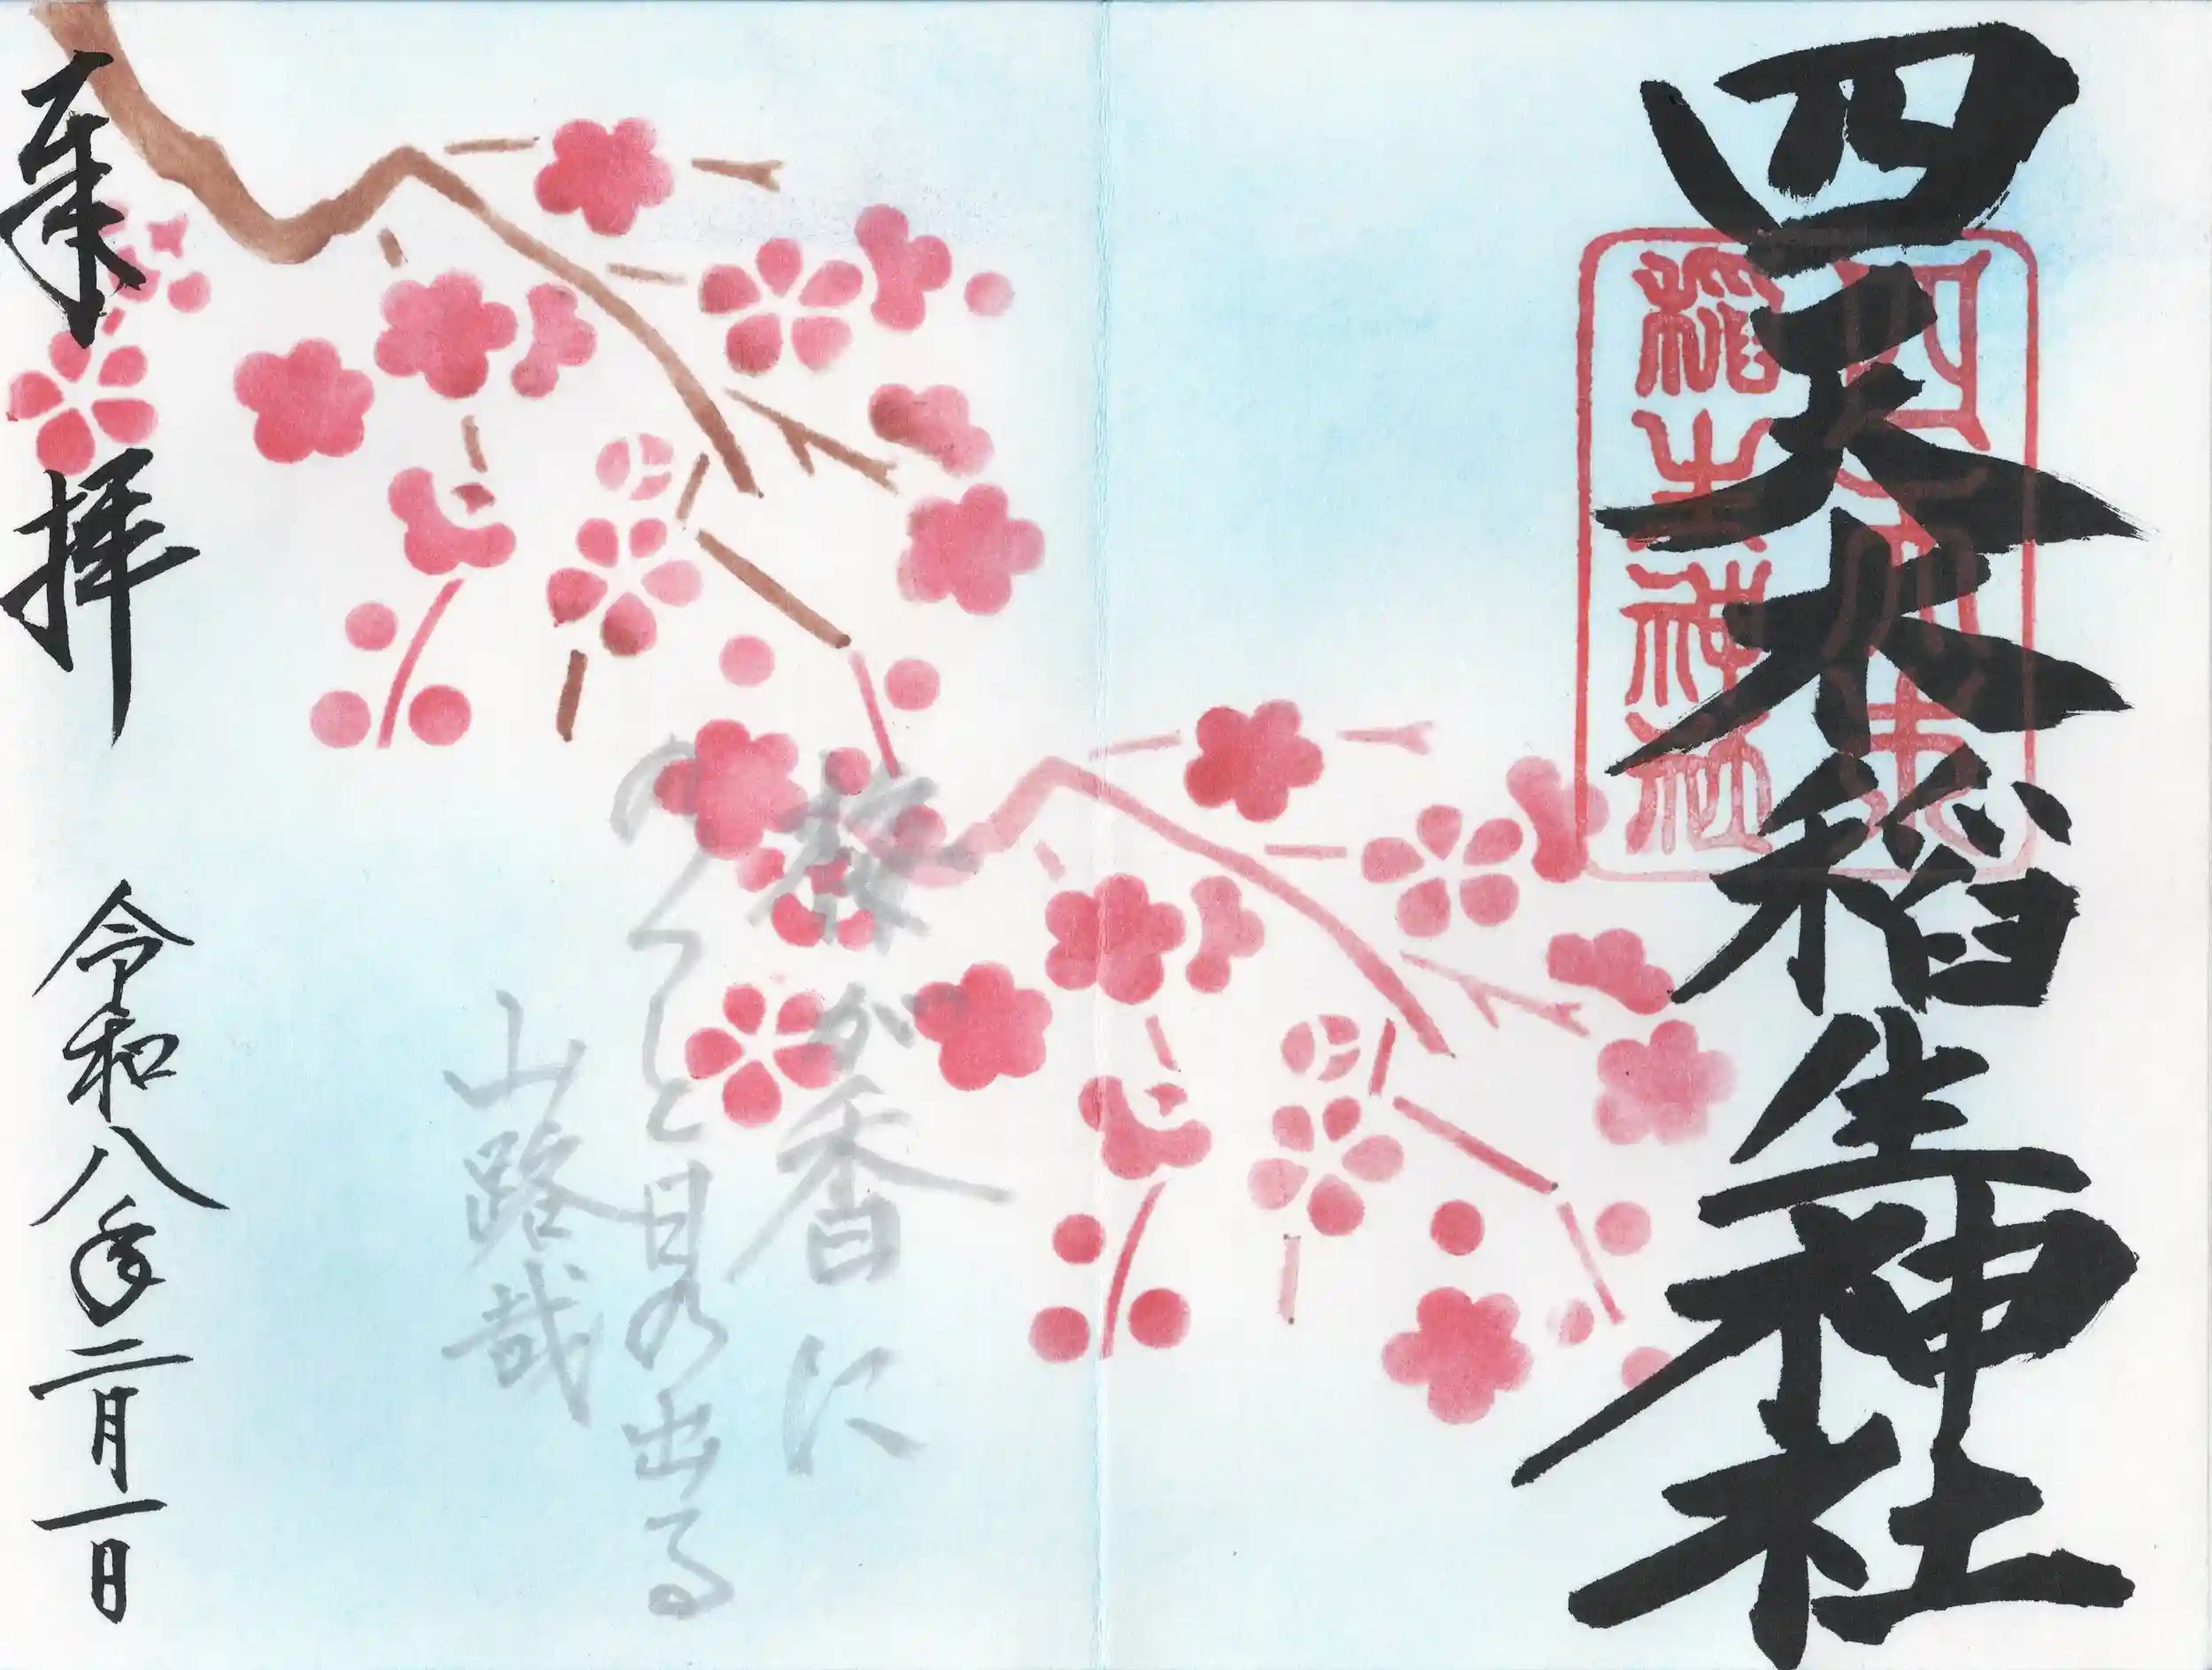 四天木稲生神社
四天木
稲生神社
梅が香に
のつと日の出る
山路哉
奉拝
令和八年二月一日